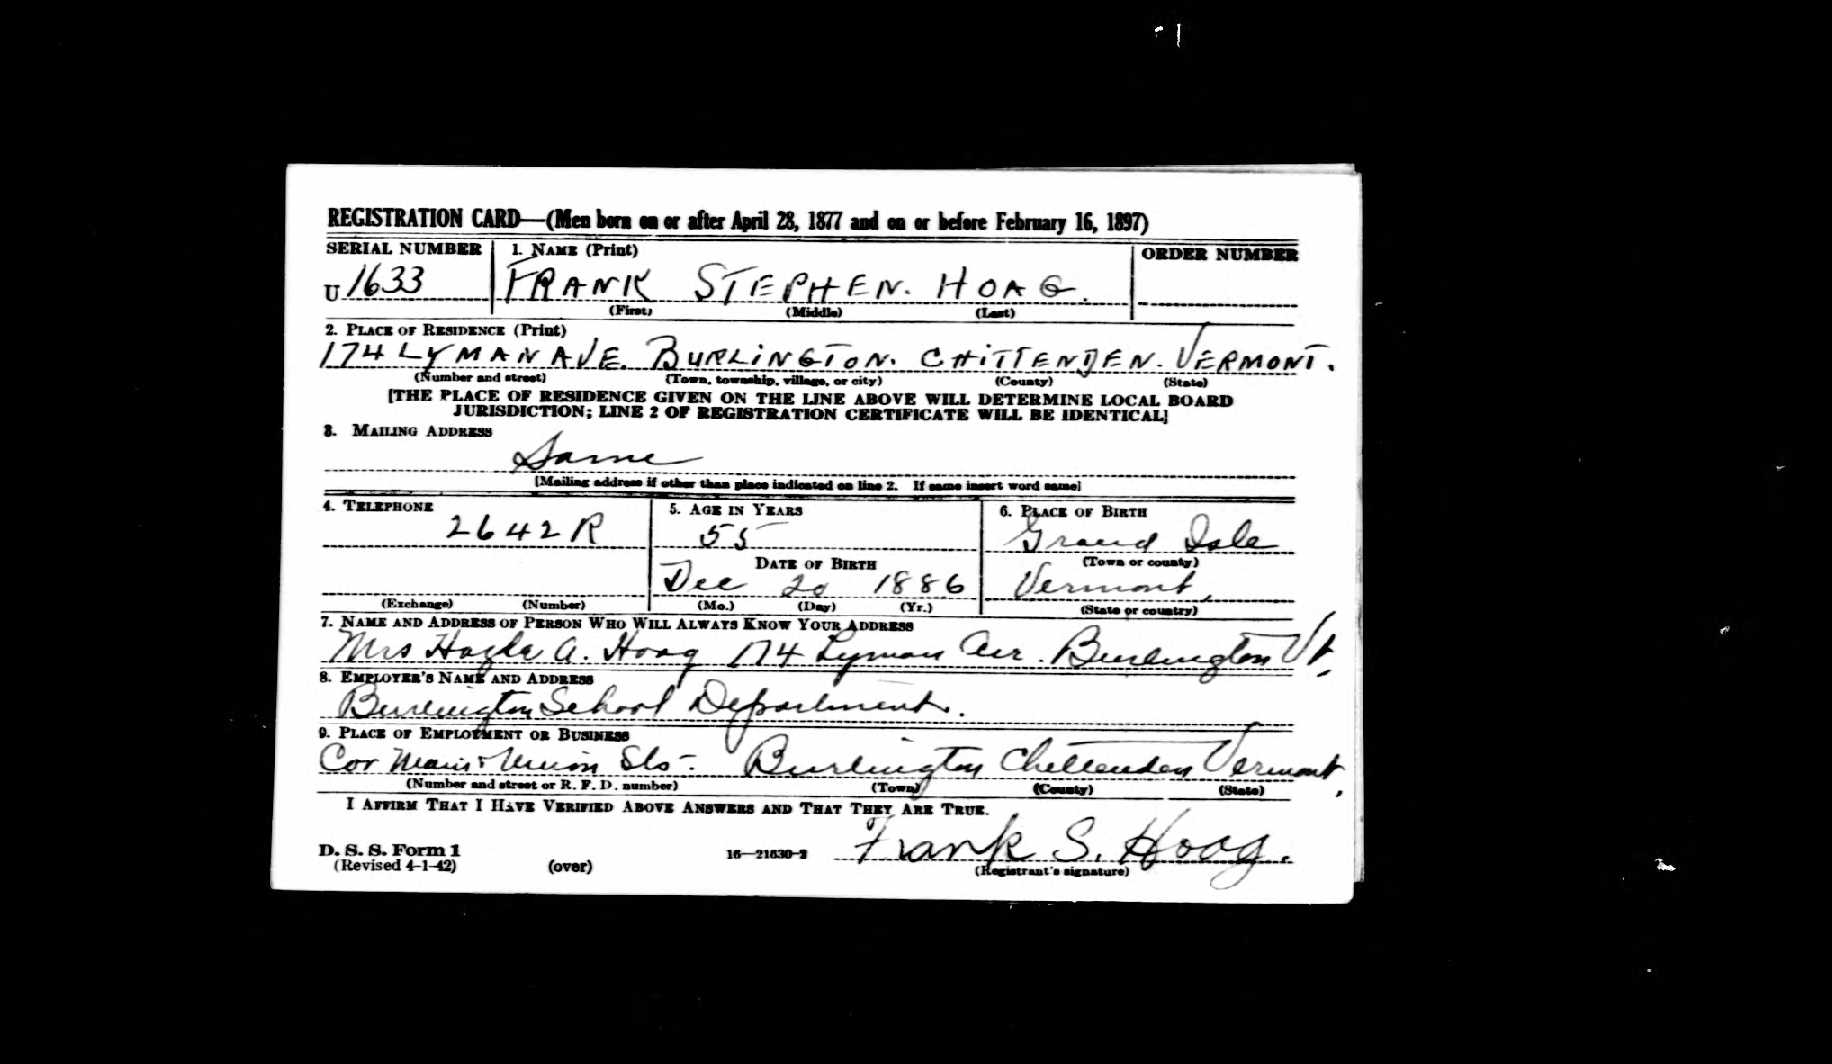 REGISTRATION CARD—(Men born on or after April 28, 1877 and on or before February 16, 1897)
SERIAL NUMBER 1. NAME (Print) ORDER NUMBER
U 1633 FRANK STEPHEN. HOAG.
(First) (Middle) (Last)
2. PLACE OF RESIDENCE (Print)
174 LYMAN AVE. BURLINGTON. CHITTENDEN. VERMONT.
(Number and street) (Town, township, village, or city) (County) (State)
[THE PLACE OF RESIDENCE GIVEN ON THE LINE ABOVE WILL DETERMINE LOCAL BOARD
JURISDICTION; LINE 2 OF REGISTRATION CERTIFICATE WILL BE IDENTICAL]
3. MAILING ADDRESS
Same
[Mailing address if other than place indicated on line 2. If same insert word same]
4. TELEPHONE 5. AGE IN YEARS 6. PLACE OF BIRTH
2642R 55 Grand Isle
DATE OF BIRTH (Town or county)
Dec 20 1886 Vermont,
(Exchange) (Number) (Mo.) (Day) (Yr.) (State or country)
7. NAME AND ADDRESS OF PERSON WHO WILL ALWAYS KNOW YOUR ADDRESS
Mrs A. Hoag 174 Lyman Burlington Vt.
8. EMPLOYER'S NAME AND ADDRESS
Burlington School Department.
9. PLACE OF EMPLOYMENT OR BUSINESS
Cor Main & Union Sts- Burlington Chittenden Vermont.
(Number and street or R. F. D. number) (Town) (County) (State)
I AFFIRM THAT I HAVE VERIFIED ABOVE ANSWERS AND THAT THEY ARE TRUE.
D. S. S. Form 1
(Revised 4-1-42) (over) 16—21630-2 Frank S. Hoag.
(Registrant's signature)